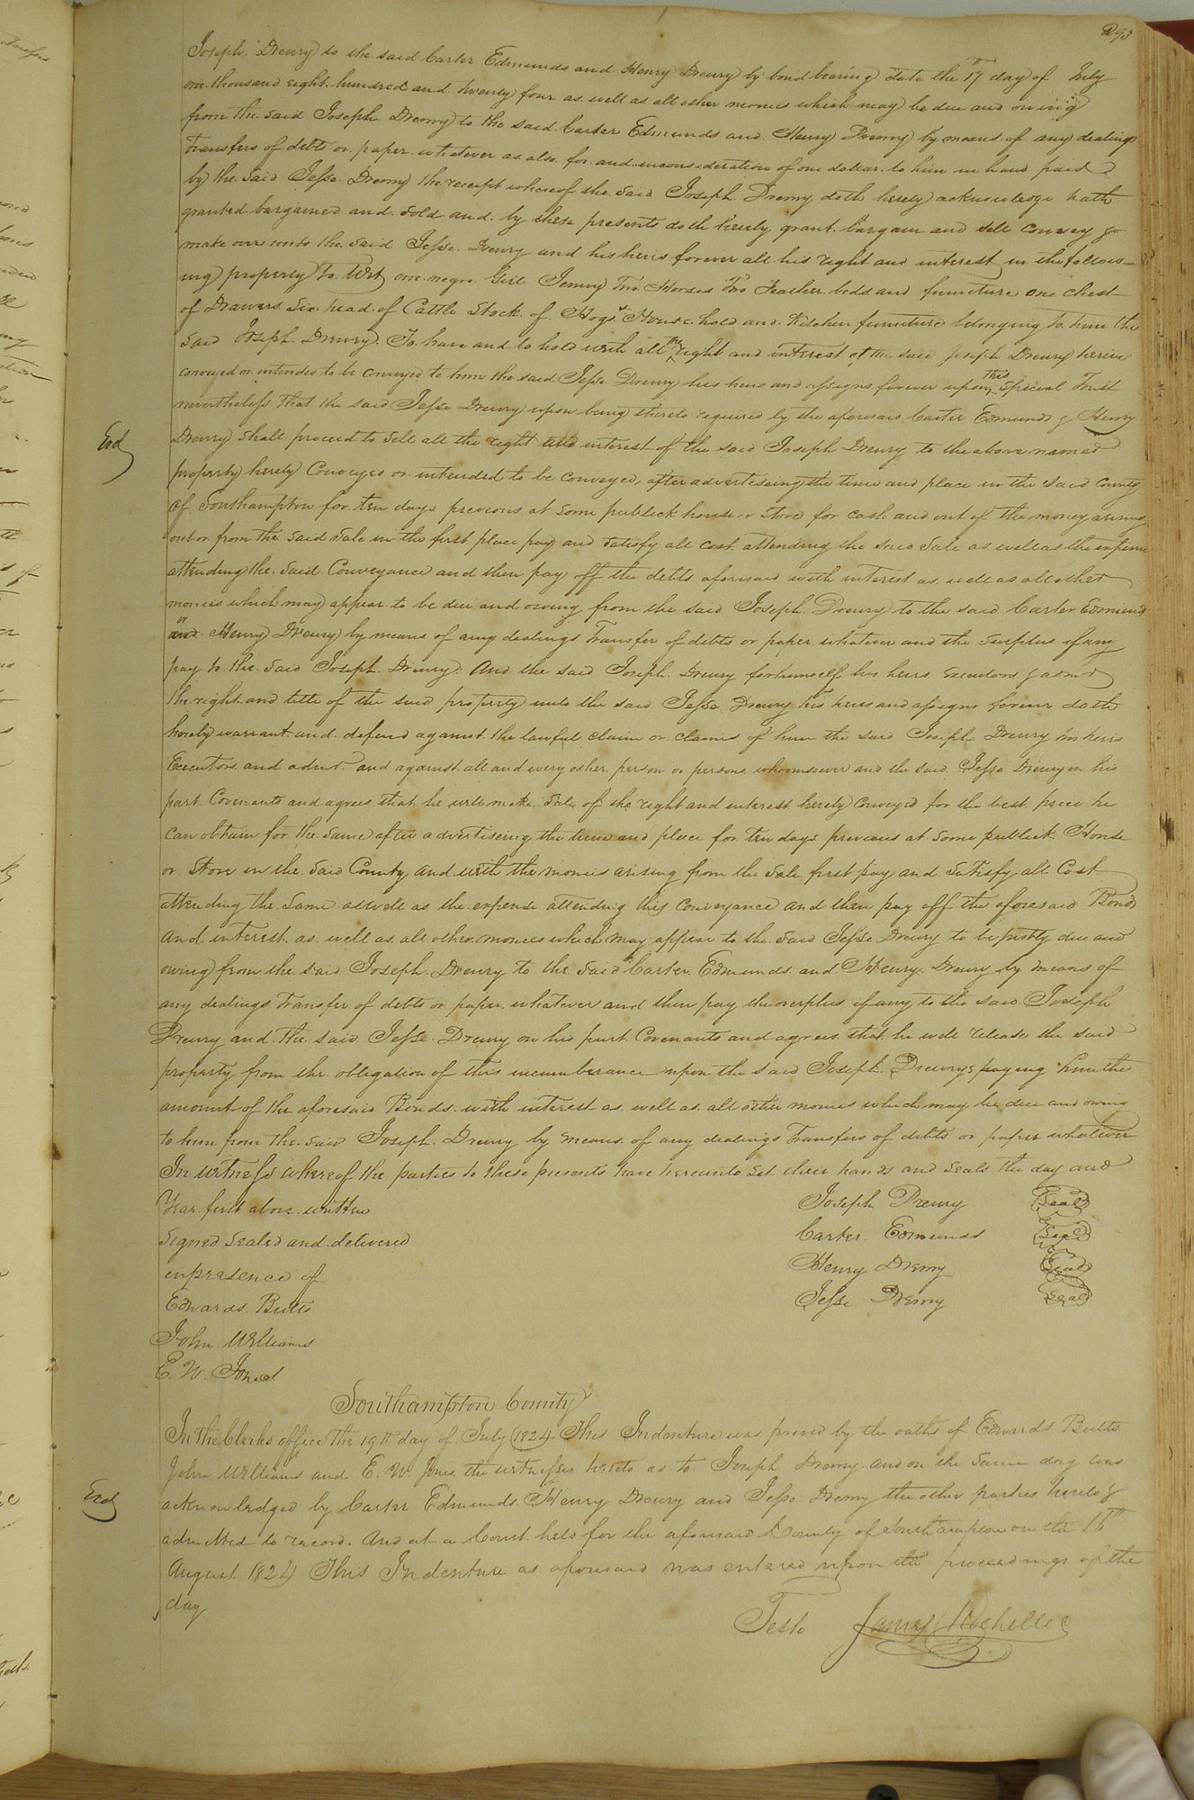 293
Joseph Drewry to the said Carter Edmunds and Henry Drewry by bond bearing date the 17 day of July
one thousand eight hundred and twenty four as well as all other monies which may be due and owing
from the said Joseph Drewry to the said Carter Edmunds and Henry Drewry by means of any dealings
transfers of debts or paper whatever as also for and in consideration of one dollar to him in hand paid
by the said Jesse Drewry the receipt whereof the said Joseph Drewry doth hereby acknowledge hath
granted bargained and sold and by these presents doth hereby grant bargain and sell convey &
make over unto the said Jesse Drewry and his heirs forever all his right and interest in the follow-
ing property To Wit, one negro Girl Jenny Two Horses Two Feather beds and furniture one chest
of Drawers Six head of Cattle Stock of Hogs & House hold and Kitchen furniture belonging to him the
said Joseph Drewry. To have and to hold with all the right and interest of the said Joseph Drewry herein
conveyed or intended to be conveyed to him the said Jesse Drewry his heirs and assigns forever upon this Special Trust
nevertheless that the said Jesse Drewry upon being thereto required by the aforesaid Carter Edmunds & Henry
Drewry shall proceed to sell all the right and interest of the said Joseph Drewry to the above named
property hereby Conveyed or intended to be conveyed, after advertiseing the time and place in the said County
of Southampton for ten days previous at some publick house or store for cash and out of the money arising
out or from the said sale in the first place pay and satisfy all cost attending the said sale as well as the expense
attending the said Conveyance and then pay off the debts aforesaid with interest as well as all other
monies which may appear to be due and owing from the said Joseph Drewry to the said Carter Edmunds
or and Henry Drewry by means of any dealings Transfer of debts or paper whatever and the surplus if any
pay to the said Joseph Drewry. And the said Joseph Drewry for himself his heirs executors & admrs
the right and title of the said property unto the said Jesse Drewry his heirs and assigns forever doth
hereby warrant and defend against the lawful claim or claims of him the said Joseph Drewry his heirs
Executors and admrs and against all and every other person or persons whomsoever and the said Jesse Drewry on his
part Covenants and agrees that he will make sale of the right and interest hereby conveyed for the best price he
can obtain for the same after advertiseing the time and place for ten days previous at some publick House
or Store in the said County and with the monies arising from the sale first pay and satisfy all Cost
attending the same aswell as the expense attending this conveyance and then pay off the aforesaid Bonds
and interest as well as all other monies which may appear to the said Jesse Drewry to be justly due and
owing from the said Joseph Drewry to the said Carter Edmunds and Henry Drewry by means of
any dealings transfer of debts or paper whatever and then pay the overplus if any to the said Joseph
Drewry and the said Jesse Drewry on his part Covenants and agrees that he will release the said
property from the obligation of this incumberance upon the said Joseph Drewrys paying him the
amount of the aforesaid Bonds with interest as well as all other monies which may be due and owing
to him from the said Joseph Drewry by means of any dealings Transfers of debts or paper whatever
In witness whereof the parties to these presents have hereunto set their hands and seals the day and
Year first above written
Joseph Drewry Seal
Signed Sealed and delivered
Carter Edmunds Seal
in presence of
Henry Drewry Seal
Edwards Butts
Jesse Drewry Seal
John Williams
E. W. Jones
Southampton County
In the Clerks office the 19th day of July 1824 This Indenture was proved by the oaths of Edwards Butts
John Williams and E. W. Jones the witnesses hereto as to Joseph Drewry and on the same day was
acknowledged by Carter Edmunds Henry Drewry and Jesse Drewry the other parties hereto &
admitted to record. And at a Court held for the aforesaid County of Southampton on the 16th
August 1824 This Indenture as aforesaid was entered upon the proceedings of the
day
Teste James Rochelle C